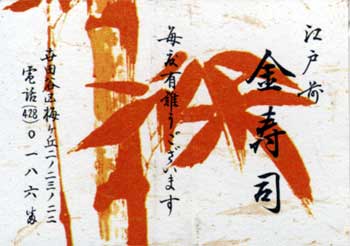 江戸前
金寿司
毎度有難うございます
世田谷区梅ヶ丘二ノ二三ノ二二
電話(428)〇一八六番